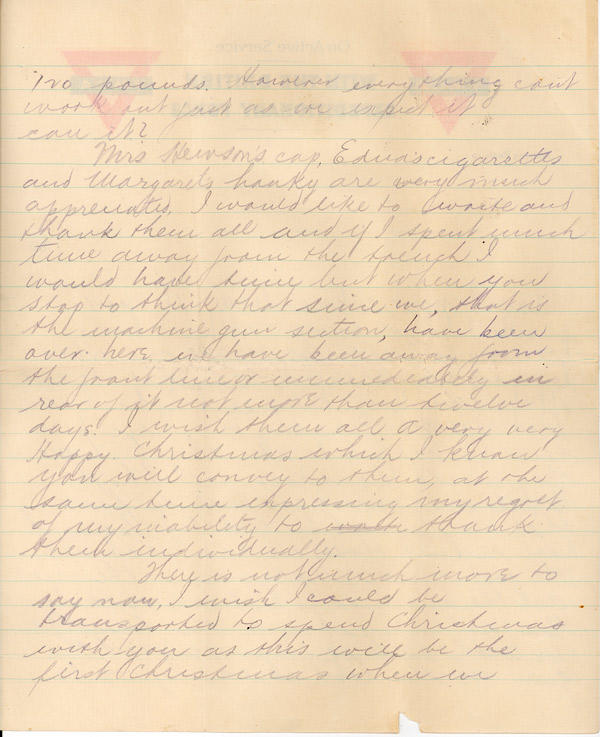 On Active Service
two pounds. However everything cant
work out just as we expect it
can it?
Mrs Hewson's cap, Edna's cigarettes
and Margarets hanky are very much
appreciated, I would like to write and
thank them all and if I spent much
time away from the trench I
would have time but when you
stop to think that since we, that is
the machine gun section, have been
over here we have been away from
the front line or immediately in
rear of it not more than twelve
days. I wish them all a very very
Happy Christmas which I know
you will convey to them, at the
same time expressing my regret
of my inability to thank
them individually.
There is not much more to
say now, I wish I could be
transported to spend Christmas
with you as this will be the
first Christmas when we